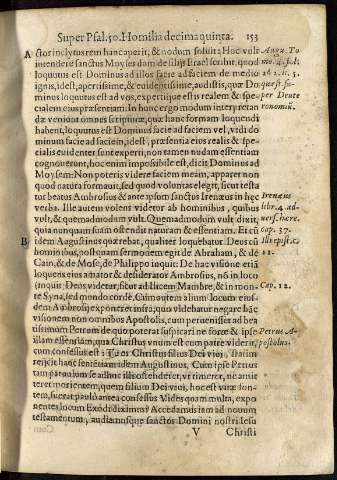 Super Psal. 50. Homilia decima quinta. 153
A ctor inclytus rem hanc aperit, & nodum soluit: Hoc vult
intendere sanctus Moyses dum de filijs Israel scribit, quod
loquutus est Dominus ad illos facie ad faciem de medio
ignis, idest, apertissime, & euidentissime, audistis, quæ Do
minus loquutus est ad vos, expertiq́ue estis realem & spe
cialem eius præsentiam. In hunc ergo modum interpretan
dæ veniunt omnes scripturæ, quæ hanc formam loquendi
habent, loquutus est Dominus facie ad faciem vel, vidi do
minum facie ad faciem, idest, præsentia eius reali & spe
ciali euidenter sunt experti, non tamen nudam essentiam
cognouerunt, hoc enim impossibile est, dicit Dominus ad
Moysem: Non poteris videre faciem meam, apparet non
quod natura formauit, sed quod voluntas elegit, sicut testa
tur beatus Ambrosius & ante ipsum sanctus Irenæus in hęc
verba. Ille autem volens videtur ab hominibus, quibus
vult, & quemadmodum vult. Quemadmodum vult dixit,
quia nunquam suam ostendit naturam & essentiam. Et eũ
B idem Augustinus quærebat, qualiter loquebatur Deus cũ
hominibus, postquam sermonem egit de Abraham, & de
Cain, & de Mose, de Philippo inquit: De hac visione etiã
loquens eius amator & desiderator Ambrosius, nõ in loco
inquit Deus videtur, sicut ad Ilicem Mambre, & in mon-
te Syna, sed mundo corde. Cum autem alium locum eius-
dem Ambrosij exponeret infrà, quo videbatur negare hãc
visionem non omnibus Apostolis, cum peruenisset ad bea
tissimum Petrum de quo poterat suspicari ne forte & ipse
illam essentiam, qua Christus vnum est cum patre viderit,
cum confessus est: Tu es Christus filius Dei viui, statim
reijcit hanc sententiam idem Augustinus, Cum ipse Petrus
tam paruulum se adhuc illi ostenderet, vt timeret, ne amit
teret morientem, quem filium Dei viui, hoc est vitæ fon-
tem, fuerat paulò ante confessus Vides quam multa, expo
nentes locum Exodi diximus? Accedamus iam ad nouum
testamentum, audiamusque sanctos Domini nostri Iesu
V Christi
Irenæus
libr. 4. ad-
uers. hære.
cap. 37.
Cap. 12.
Petrus A-
postolus.